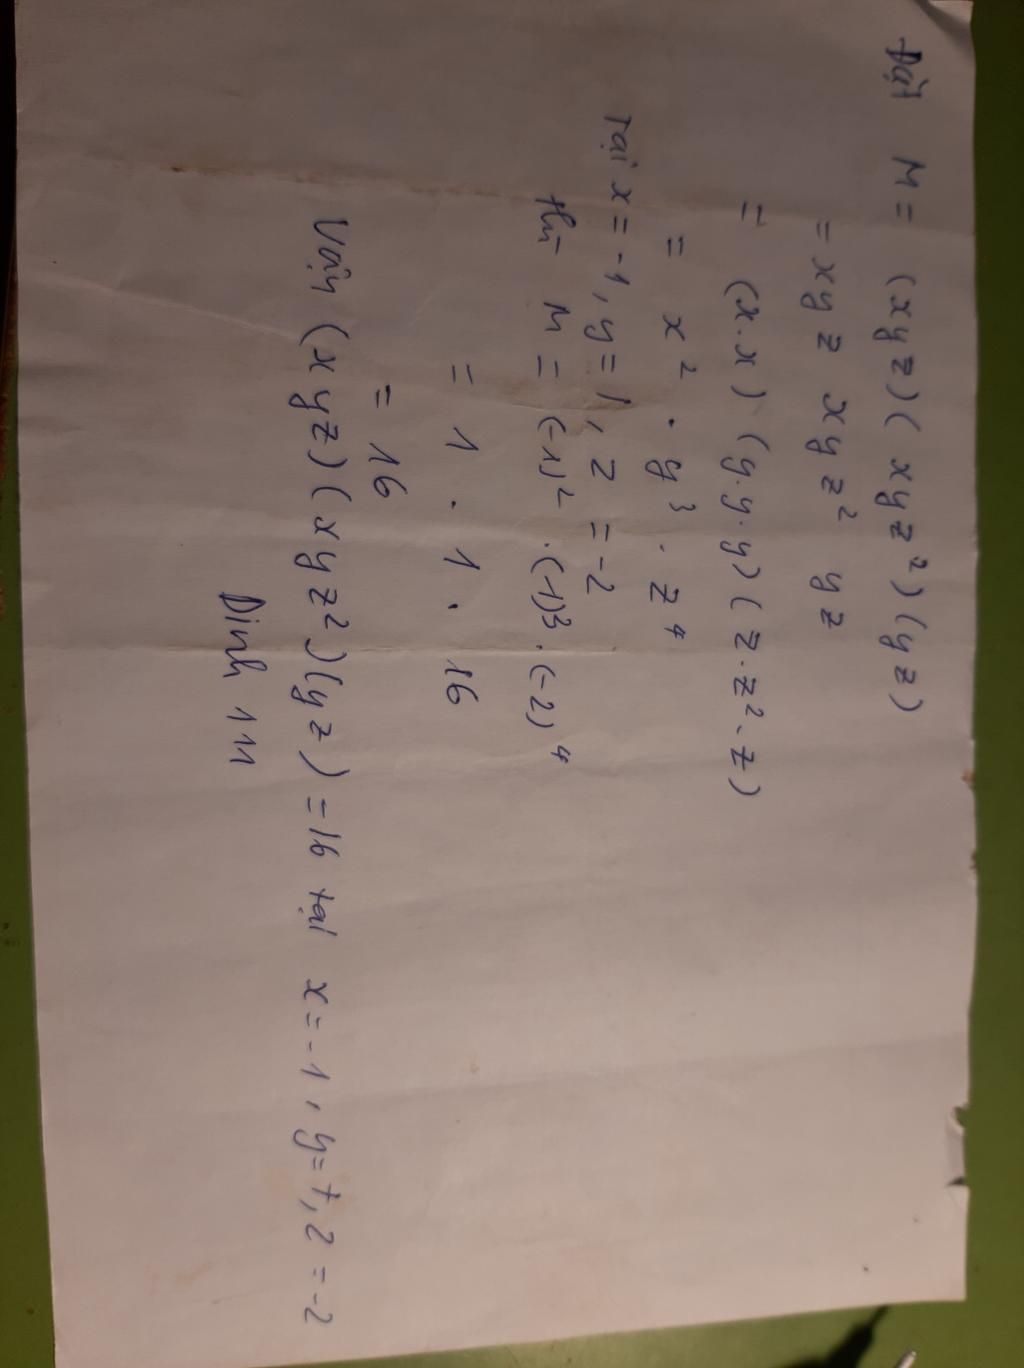 Đặt M = (xyz)(xyz²)(yz)
= xyz xyz² yz
= (x.x) (y.y.y) (z.z².z)
= x² . y³ . z⁴
Tại x = -1, y = 1, z = -2
thì M = (-1)² . (1)³ . (-2)⁴
= 1 . 1 . 16
= 16
Vậy (xyz)(xyz²)(yz) = 16 tại x = -1, y = 1, z = -2
Dinh 111